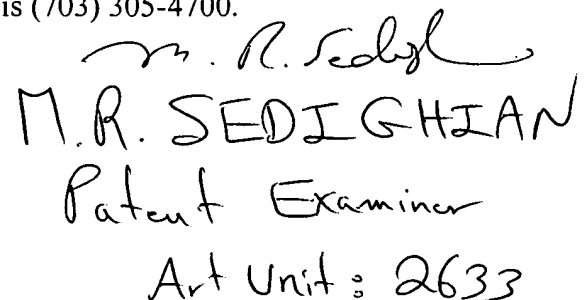 is (703) 305-4700.
M. R. Sedigh
M.R. SEDIGHIAN
Patent Examiner
Art Unit : 2633